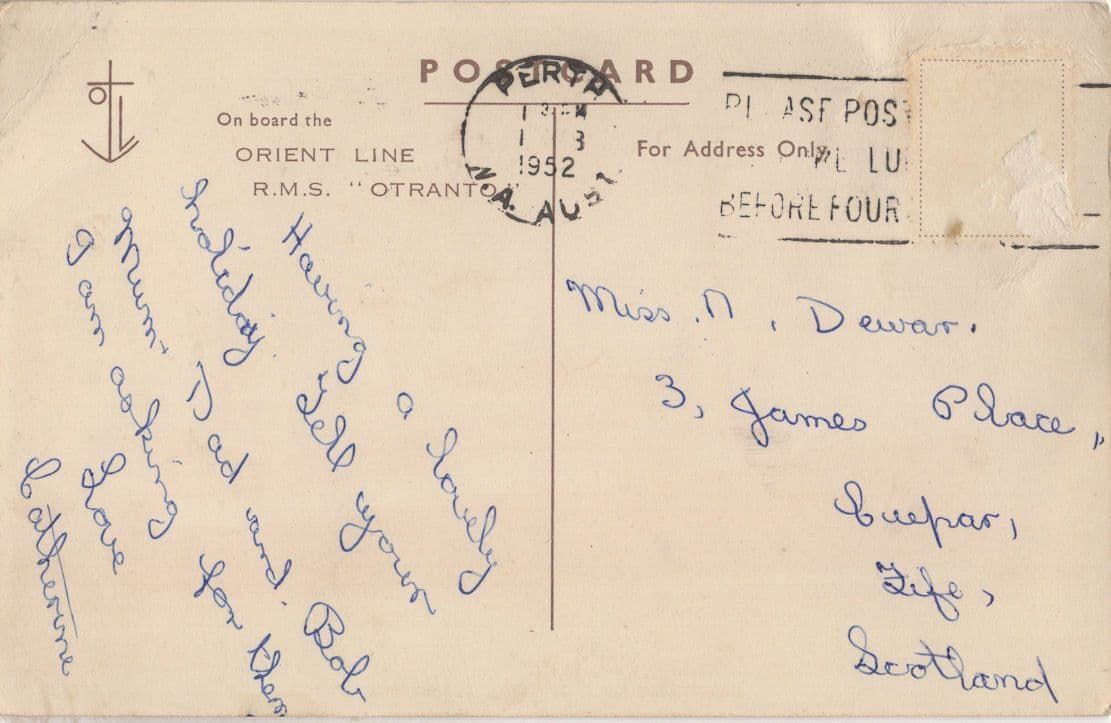 POSTCARD
On board the
ORIENT LINE
R.M.S. "OTRANTO"
For Address Only
PERTH
1952
W.A. AUST
PLEASE POST
BEFORE FOUR
Having a lovely
holiday. Tell your
Mum, Dad and Bob
I am asking for them
Love
Catherine
Miss. N. Dewar.
3, James Place,
Cuepar,
Fife,
Scotland